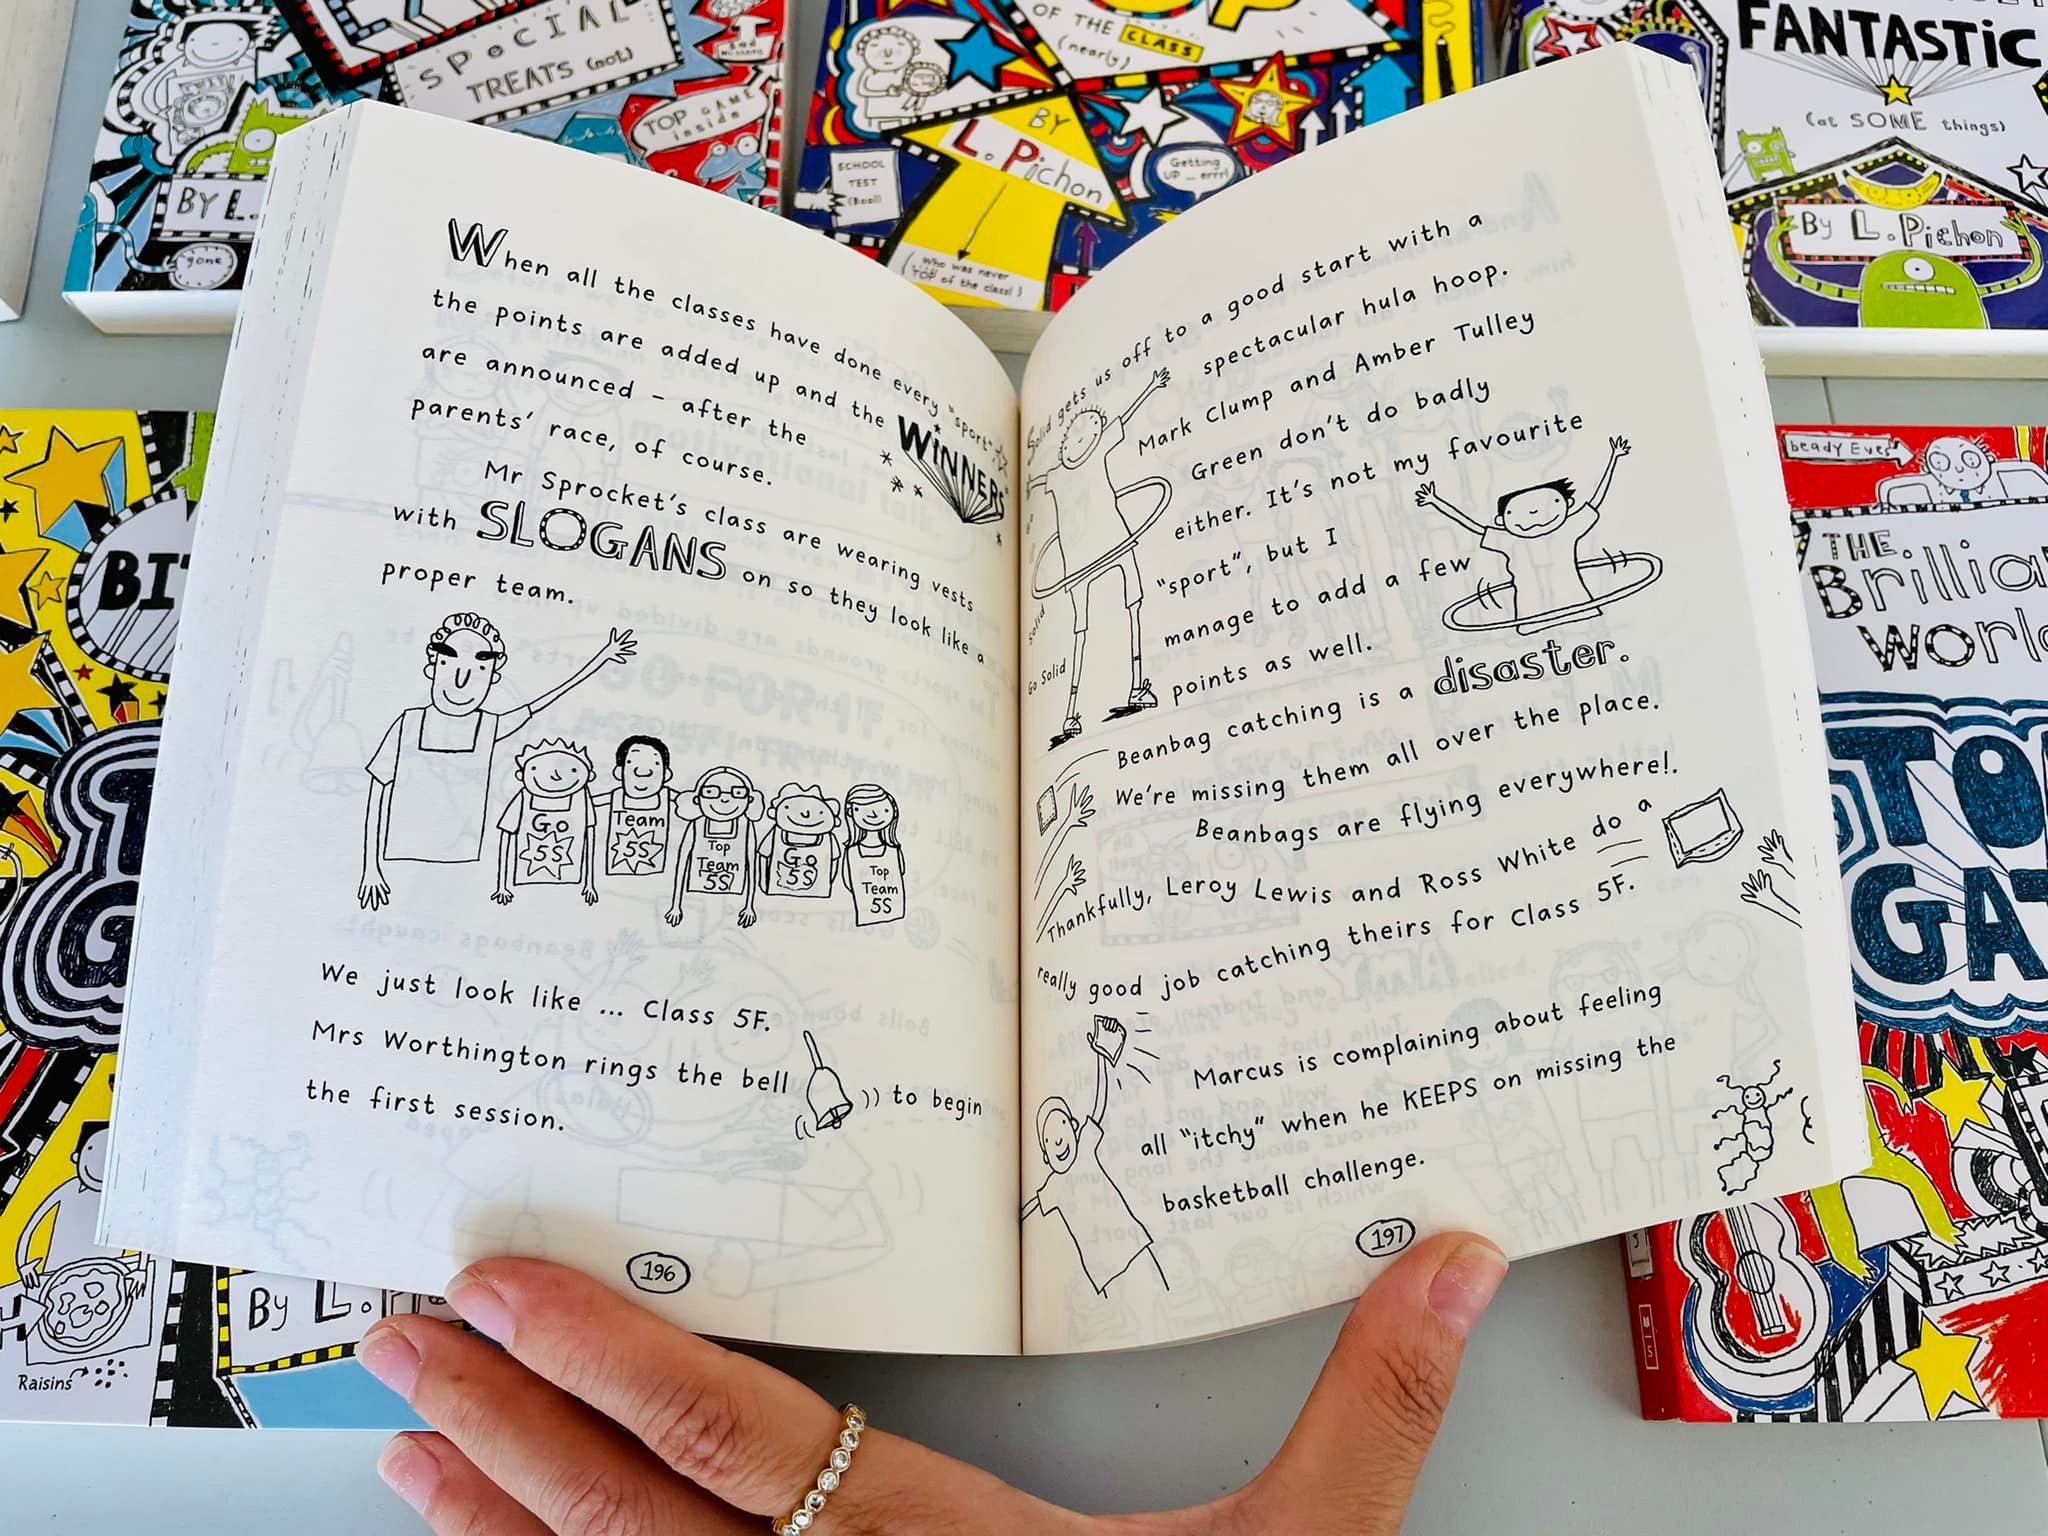 SPeCIAL
TREATS (not)
TOP GAME
inside
BY L.
gone
OF THE CLASS
(nearly)
BY
L. Pichon
SCHOOL
TEST
(Boo!)
Getting
UP ... errr!
(Who was never
TOP of the class!)
FANTASTiC
(at SOME things)
By L. Pichon
When all the classes have done every "sport"
the points are added up and the WiNNERS
are announced – after the
parents' race, of course.
Mr Sprocket's class are wearing vests
with SLOGANS on so they look like a
proper team.
Go
5S
Team
5S
Top
Team
5S
Go
5S
Top
Team
5S
We just look like ... Class 5F.
Mrs Worthington rings the bell
to begin
the first session.
196
Solid gets us off to a good start with a
spectacular hula hoop.
Mark Clump and Amber Tulley
Green don't do badly
either. It's not my favourite
"sport", but I
manage to add a few
points as well.
Solid
Go Solid
Beanbag catching is a disaster.
We're missing them all over the place.
Beanbags are flying everywhere!.
Thankfully, Leroy Lewis and Ross White do a
really good job catching theirs for Class 5F.
Marcus is complaining about feeling
all "itchy" when he KEEPS on missing the
basketball challenge.
197
beady Eyes
THE
Brillia
World
TO
GAT
By L.
Raisins